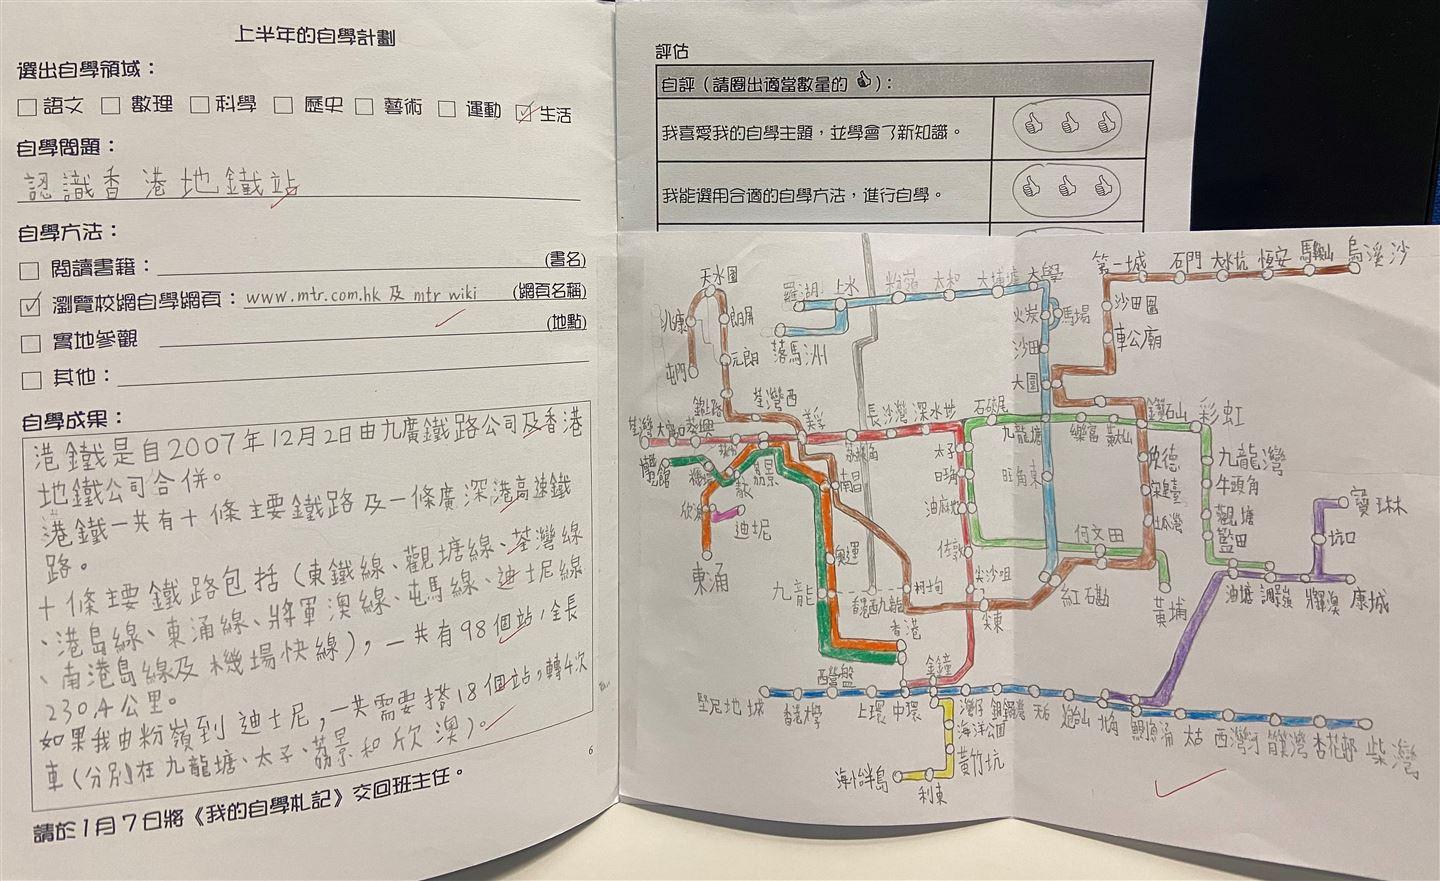 上半年的自學計劃
選出自學領域：
語文 數理 科學 歷史 藝術 運動 生活
自學問題：
認識香港地鐵站
自學方法：
閱讀書籍： (書名)
瀏覽校網自學網頁：www.mtr.com.hk 及 mtr wiki (網頁名稱)
實地參觀 (地點)
其他：
自學成果：
港鐵是自2007年12月2日由九廣鐵路公司及香港
地鐵公司合併。
港鐵一共有十條主要鐵路及一條廣深港高速鐵
路。
十條主要鐵路包括（東鐵線、觀塘線、荃灣線
、港島線、東涌線、將軍澳線、屯馬線、迪士尼線
、南港島線及機場快線），一共有98個站，全長
230.4公里。
如果我由粉嶺到迪士尼，一共需要搭18個站，轉4次
車（分別在九龍塘、太子、荔景和欣澳）。
6
請於1月7日將《我的自學札記》交回班主任。
評估
自評（請圈出適當數量的）：
我喜愛我的自學主題，並學會了新知識。
我能選用合適的自學方法，進行自學。
第一城 石門 大水坑 恆安 馬鞍山 烏溪沙
天水圍 羅湖 上水 粉嶺 太和 大埔墟 大學
兆康 朗屏 火炭 馬場 沙田圍
落馬洲 沙田 車公廟
屯門 元朗 大圍
錦上路 荃灣西 美孚 長沙灣 深水埗 石硤尾 鑽石山 彩虹
荃灣 大窩口 葵興 九龍塘 樂富
荔景 南昌 太子 旺角 旺角東 啟德 九龍灣
牛頭角
欣澳 迪士尼 油麻地 宋皇臺 觀塘 寶琳
奧運 佐敦 何文田 土瓜灣 藍田 坑口
東涌 九龍 香港西九龍 柯士甸 尖沙咀 尖東 紅磡 黃埔 油塘 調景嶺 將軍澳 康城
香港
西營盤 金鐘
堅尼地城 香港大學 上環 中環 灣仔 銅鑼灣 天后 炮台山 北角 鰂魚涌 太古 西灣河 筲箕灣 杏花邨 柴灣
海洋公園
黃竹坑
海怡半島 利東